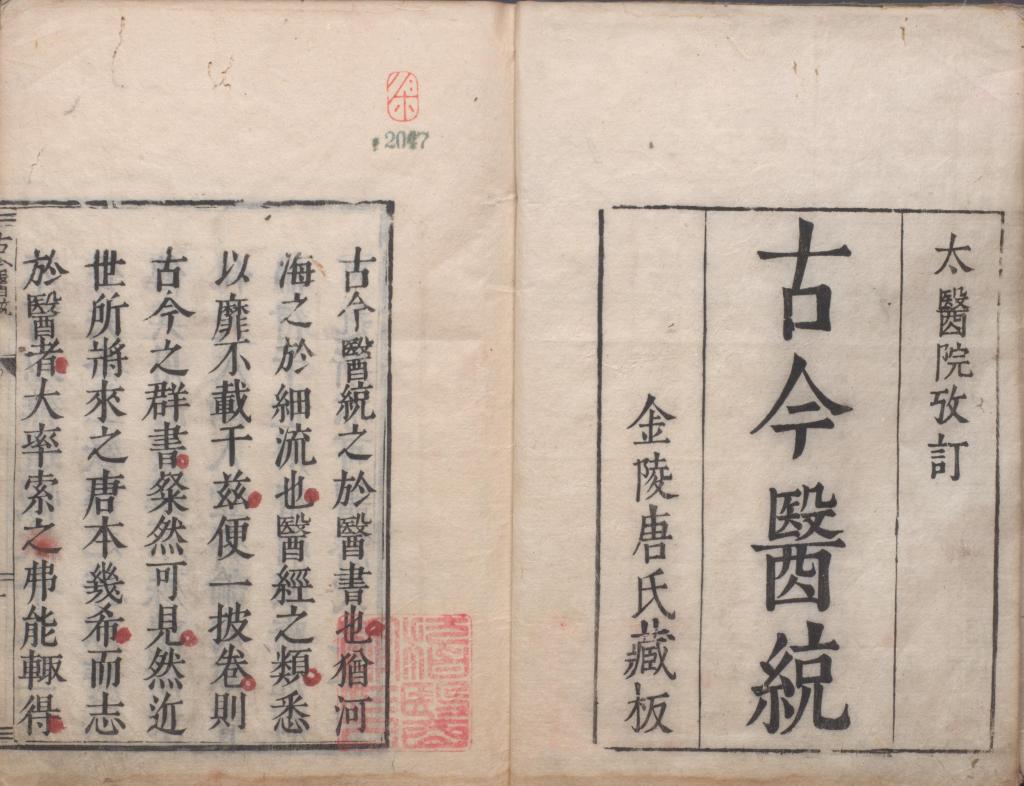 太醫院攷訂
古今醫統
金陵唐氏藏板
余
2047
古今醫統之於醫書也猶河
海之於細流也醫經之類悉
以靡不載于兹便一披卷則
古今之群書粲然可見然近
世所將來之唐本幾希而志
於醫者大率索之弗能輙得